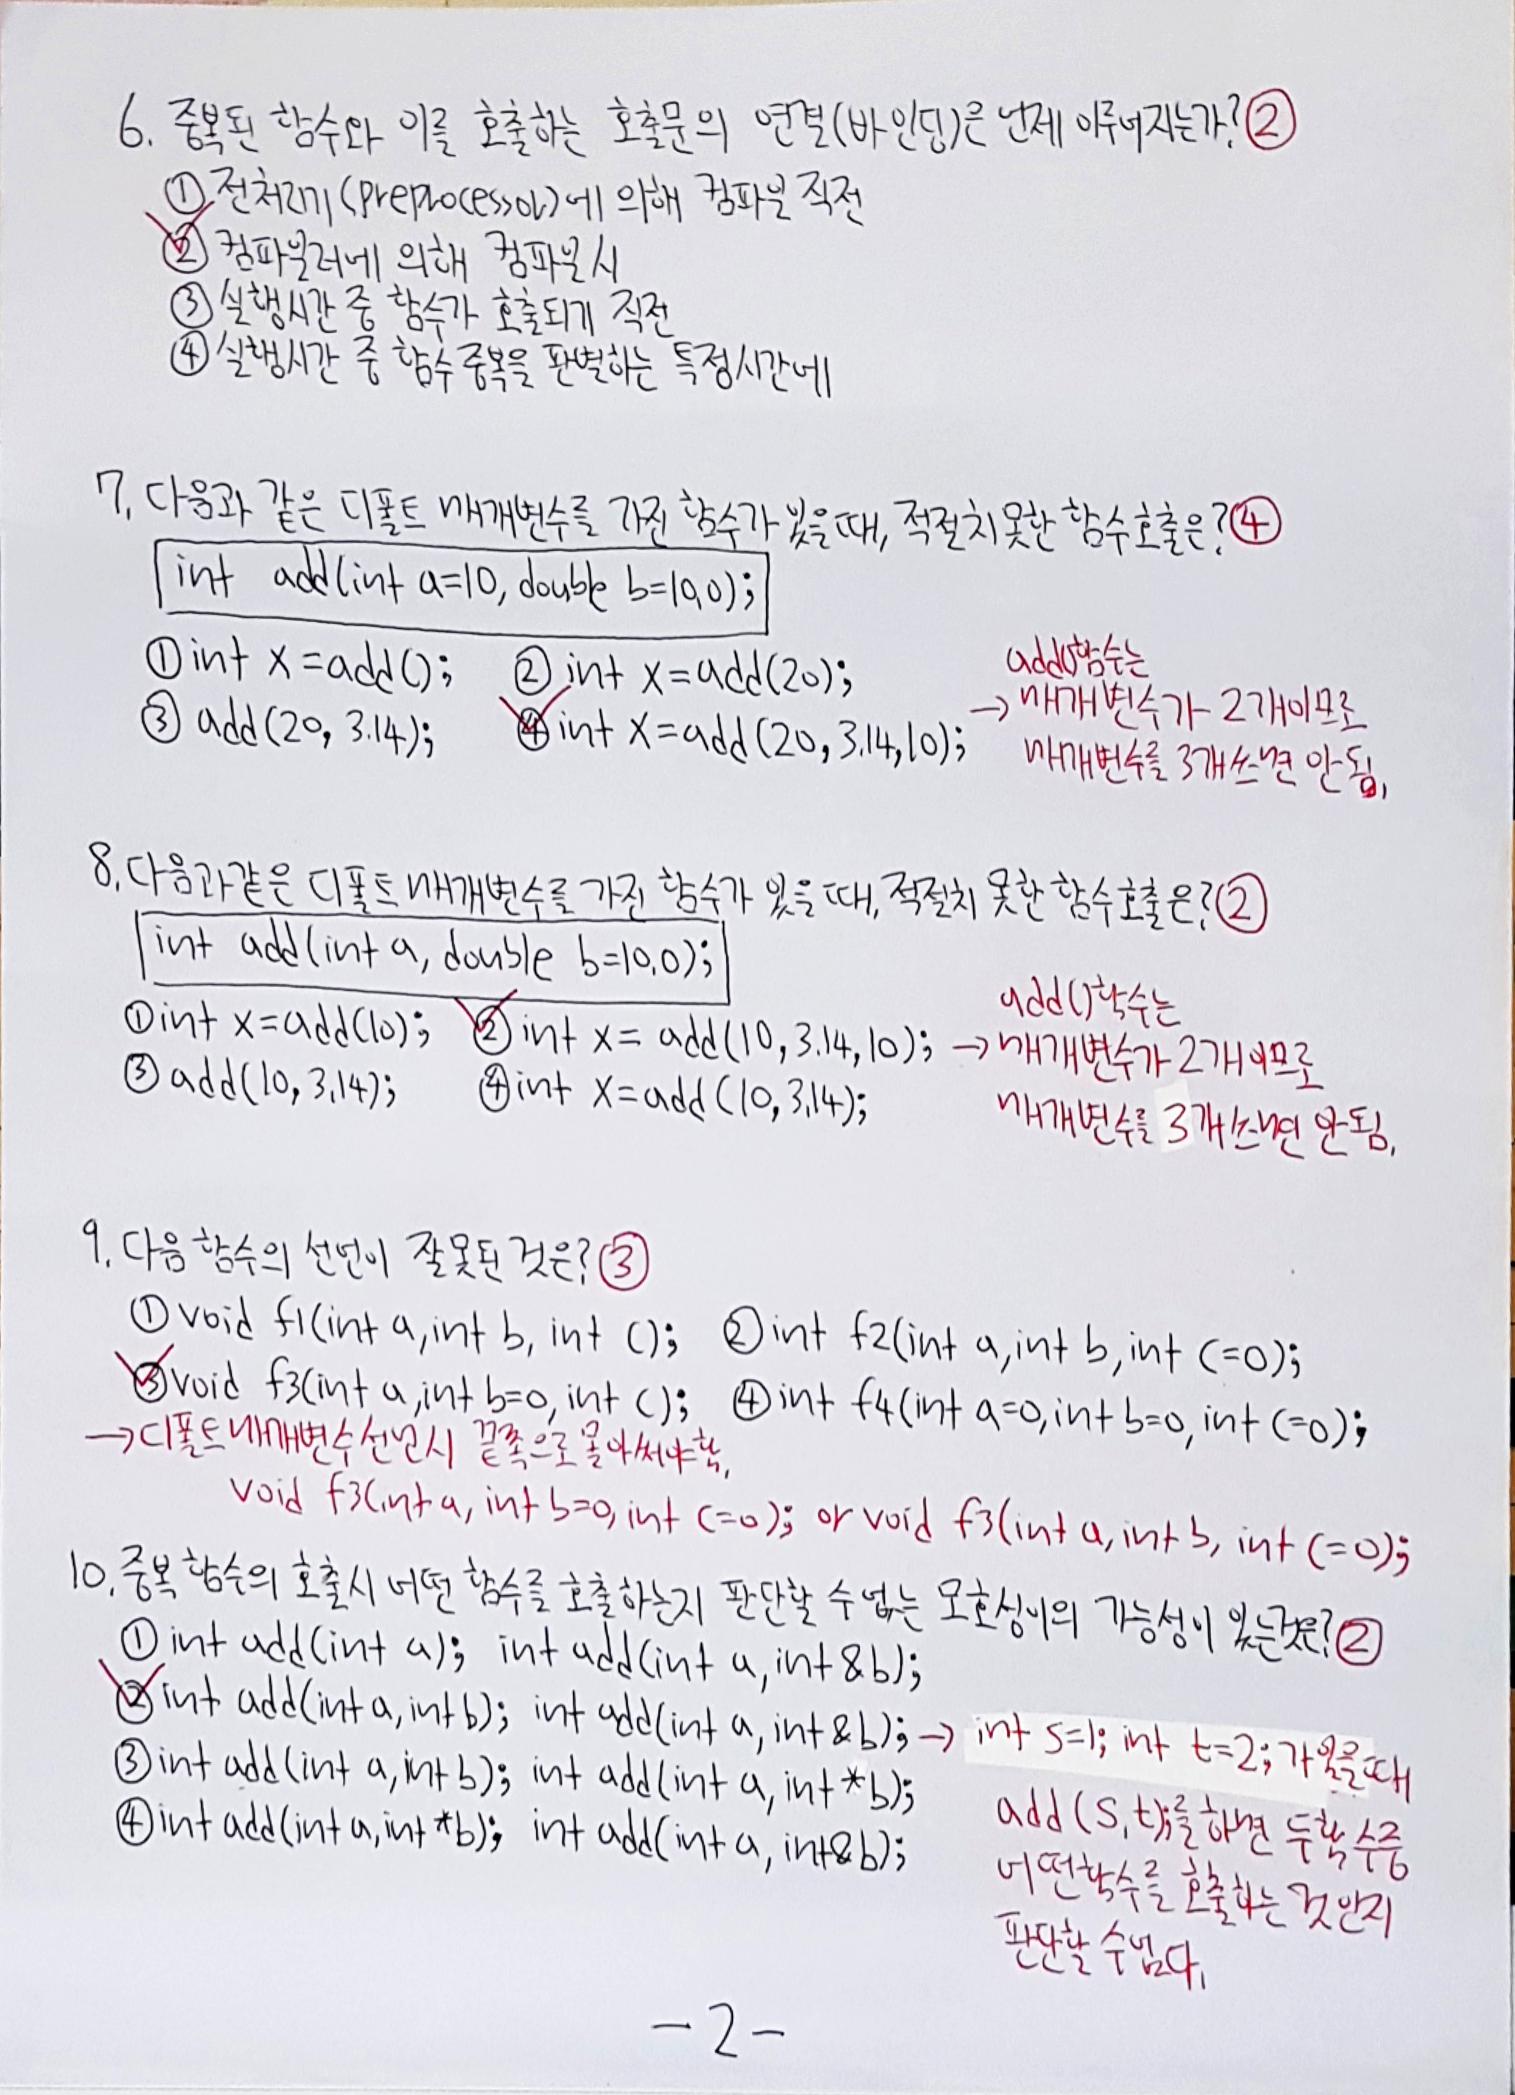 6. 중복된 함수와 이를 호출하는 호출문의 연결(바인딩)은 언제 이루어지는가? ②
① 전처리기(preprocessor)에 의해 컴파일 직전
② 컴파일러에 의해 컴파일시
③ 실행시간 중 함수가 호출되기 직전
④ 실행시간 중 함수 중복을 판별하는 특정시간에
7. 다음과 같은 디폴트 매개변수를 가진 함수가 있을 때, 적절치 못한 함수호출은? ④
int add(int a=10, double b=10.0);
① int x=add(); ② int x=add(20);
③ add(20, 3.14); ④ int x=add(20, 3.14, 10);
add()함수는
→ 매개변수가 2개이므로
매개변수를 3개 쓰면 안 됨.
8. 다음과 같은 디폴트 매개변수를 가진 함수가 있을 때, 적절치 못한 함수호출은? ②
int add(int a, double b=10.0);
① int x=add(10); ② int x= add(10, 3.14, 10);
③ add(10, 3.14); ④ int x=add(10, 3.14);
add()함수는
→ 매개변수가 2개이므로
매개변수를 3개 쓰면 안 됨.
9. 다음 함수의 선언이 잘못된 것은? ③
① void f1(int a, int b, int c); ② int f2(int a, int b, int c=0);
③ void f3(int a, int b=0, int c); ④ int f4(int a=0, int b=0, int c=0);
→ 디폴트 매개변수 선언시 끝쪽으로 몰아써야함.
void f3(int a, int b=0, int c=0); or void f3(int a, int b, int c=0);
10. 중복 함수의 호출시 어떤 함수를 호출하는지 판단할 수 없는 모호성이의 가능성이 있는것은? ②
① int add(int a); int add(int a, int &b);
② int add(int a, int b); int add(int a, int &b); → int s=1; int t=2; 가 있을때
③ int add(int a, int b); int add(int a, int *b);
④ int add(int a, int *b); int add(int a, int &b);
add(s, t);를 하면 두함수중
어떤함수를 호출하는 것인지
판단할 수 없다.
-2-